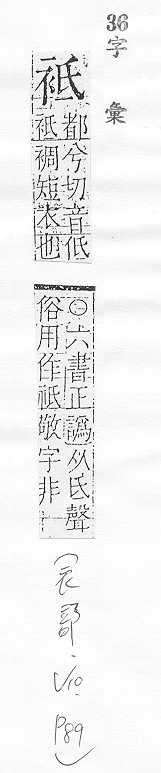 36字 彙
袛
都兮切音低
袛裯短衣也
○六書正譌从氐聲
俗用作袛敬字非
(衣部.V10.P89)